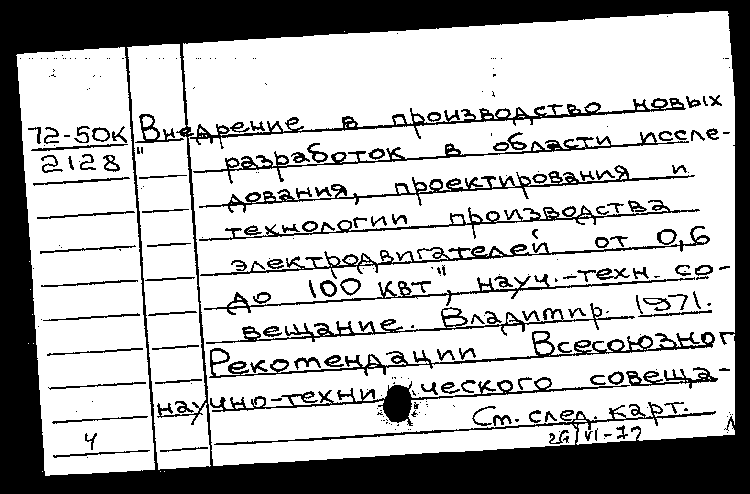 72-50к "Внедрение в производство новых
2128 разработок в области иссле-
дования, проектирования и
технологии производства
электродвигателей от 0,6
до 100 квт", науч.-техн. со-
вещание. Владимир. 1971.
Рекомендации Всесоюзног
научно-технического совеща-
См. след. карт.
4